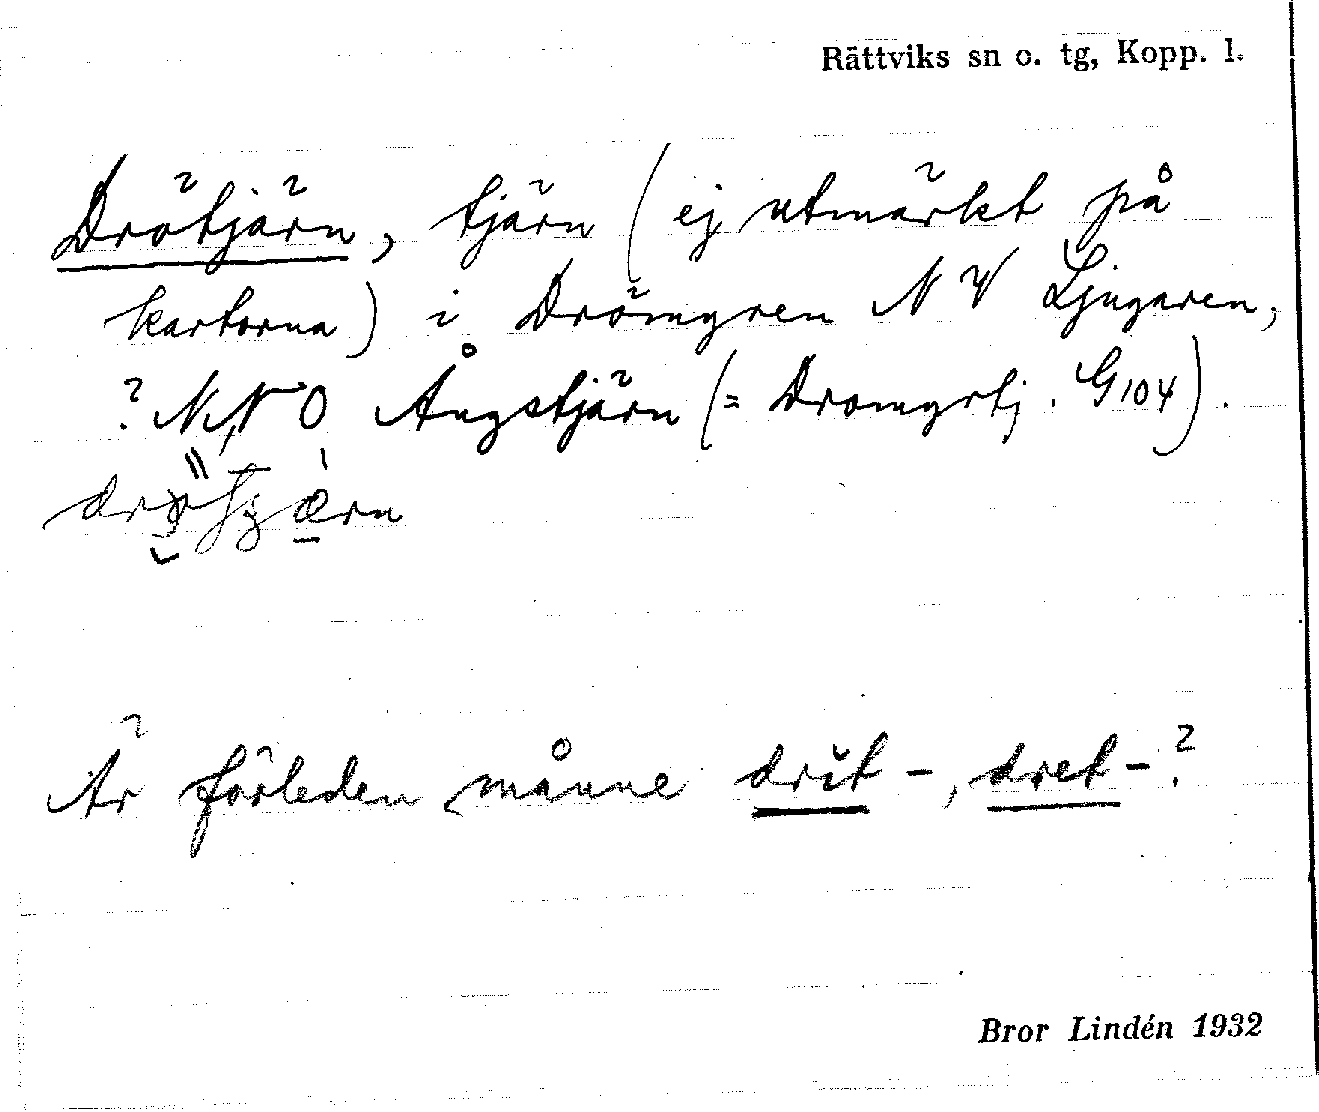 Rättviks sn o. tg, Kopp. l.
Drötjärn, tjärn (ej utmärkt på
kartorna) i Drömyren NV Ljugaren,
? NNO Ängstjärn (= Dromyrtj. G104).
Är förleden månne drit-, dret-?
Bror Lindén 1932